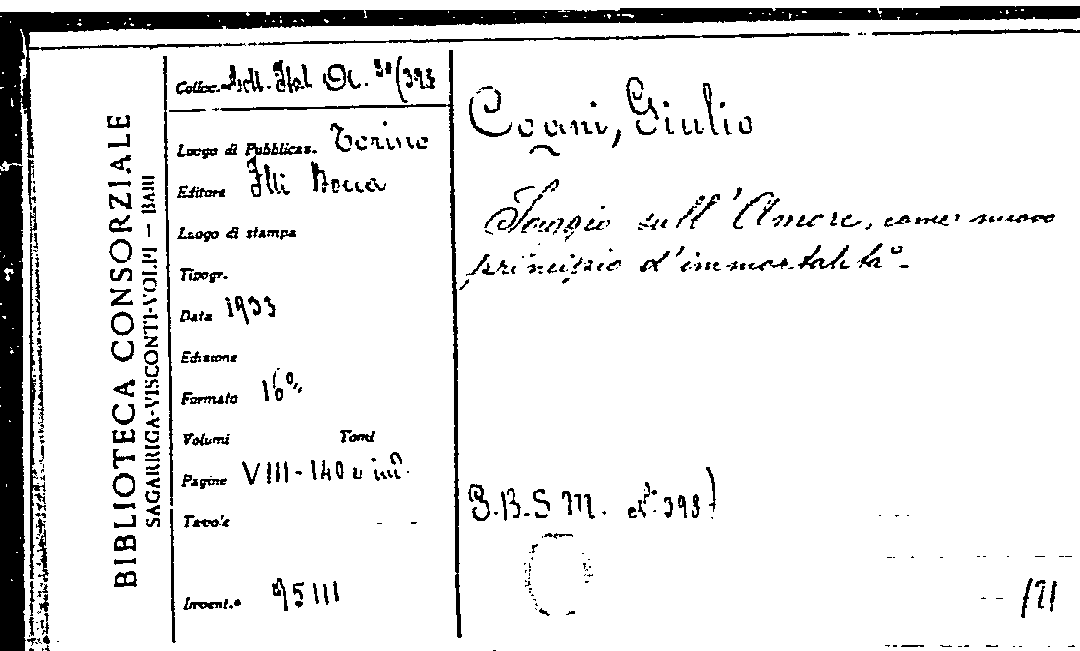 BIBLIOTECA CONSORZIALE
SAGARRIGA-VISCONTI-VOLPI — BARI
Colloc.
Luogo di Pubblicaz. Torino
Editore Flli Bocca
Luogo di stampa
Tipogr.
Data 1933
Edizione
Formato 16º
Volumi Tomi
Pagine VIII-140
Tavole
Invent.º 95111
Cogni, Giulio
Saggio sull'Amore, come nuovo
principio d'immortalità-
S.B.S M.